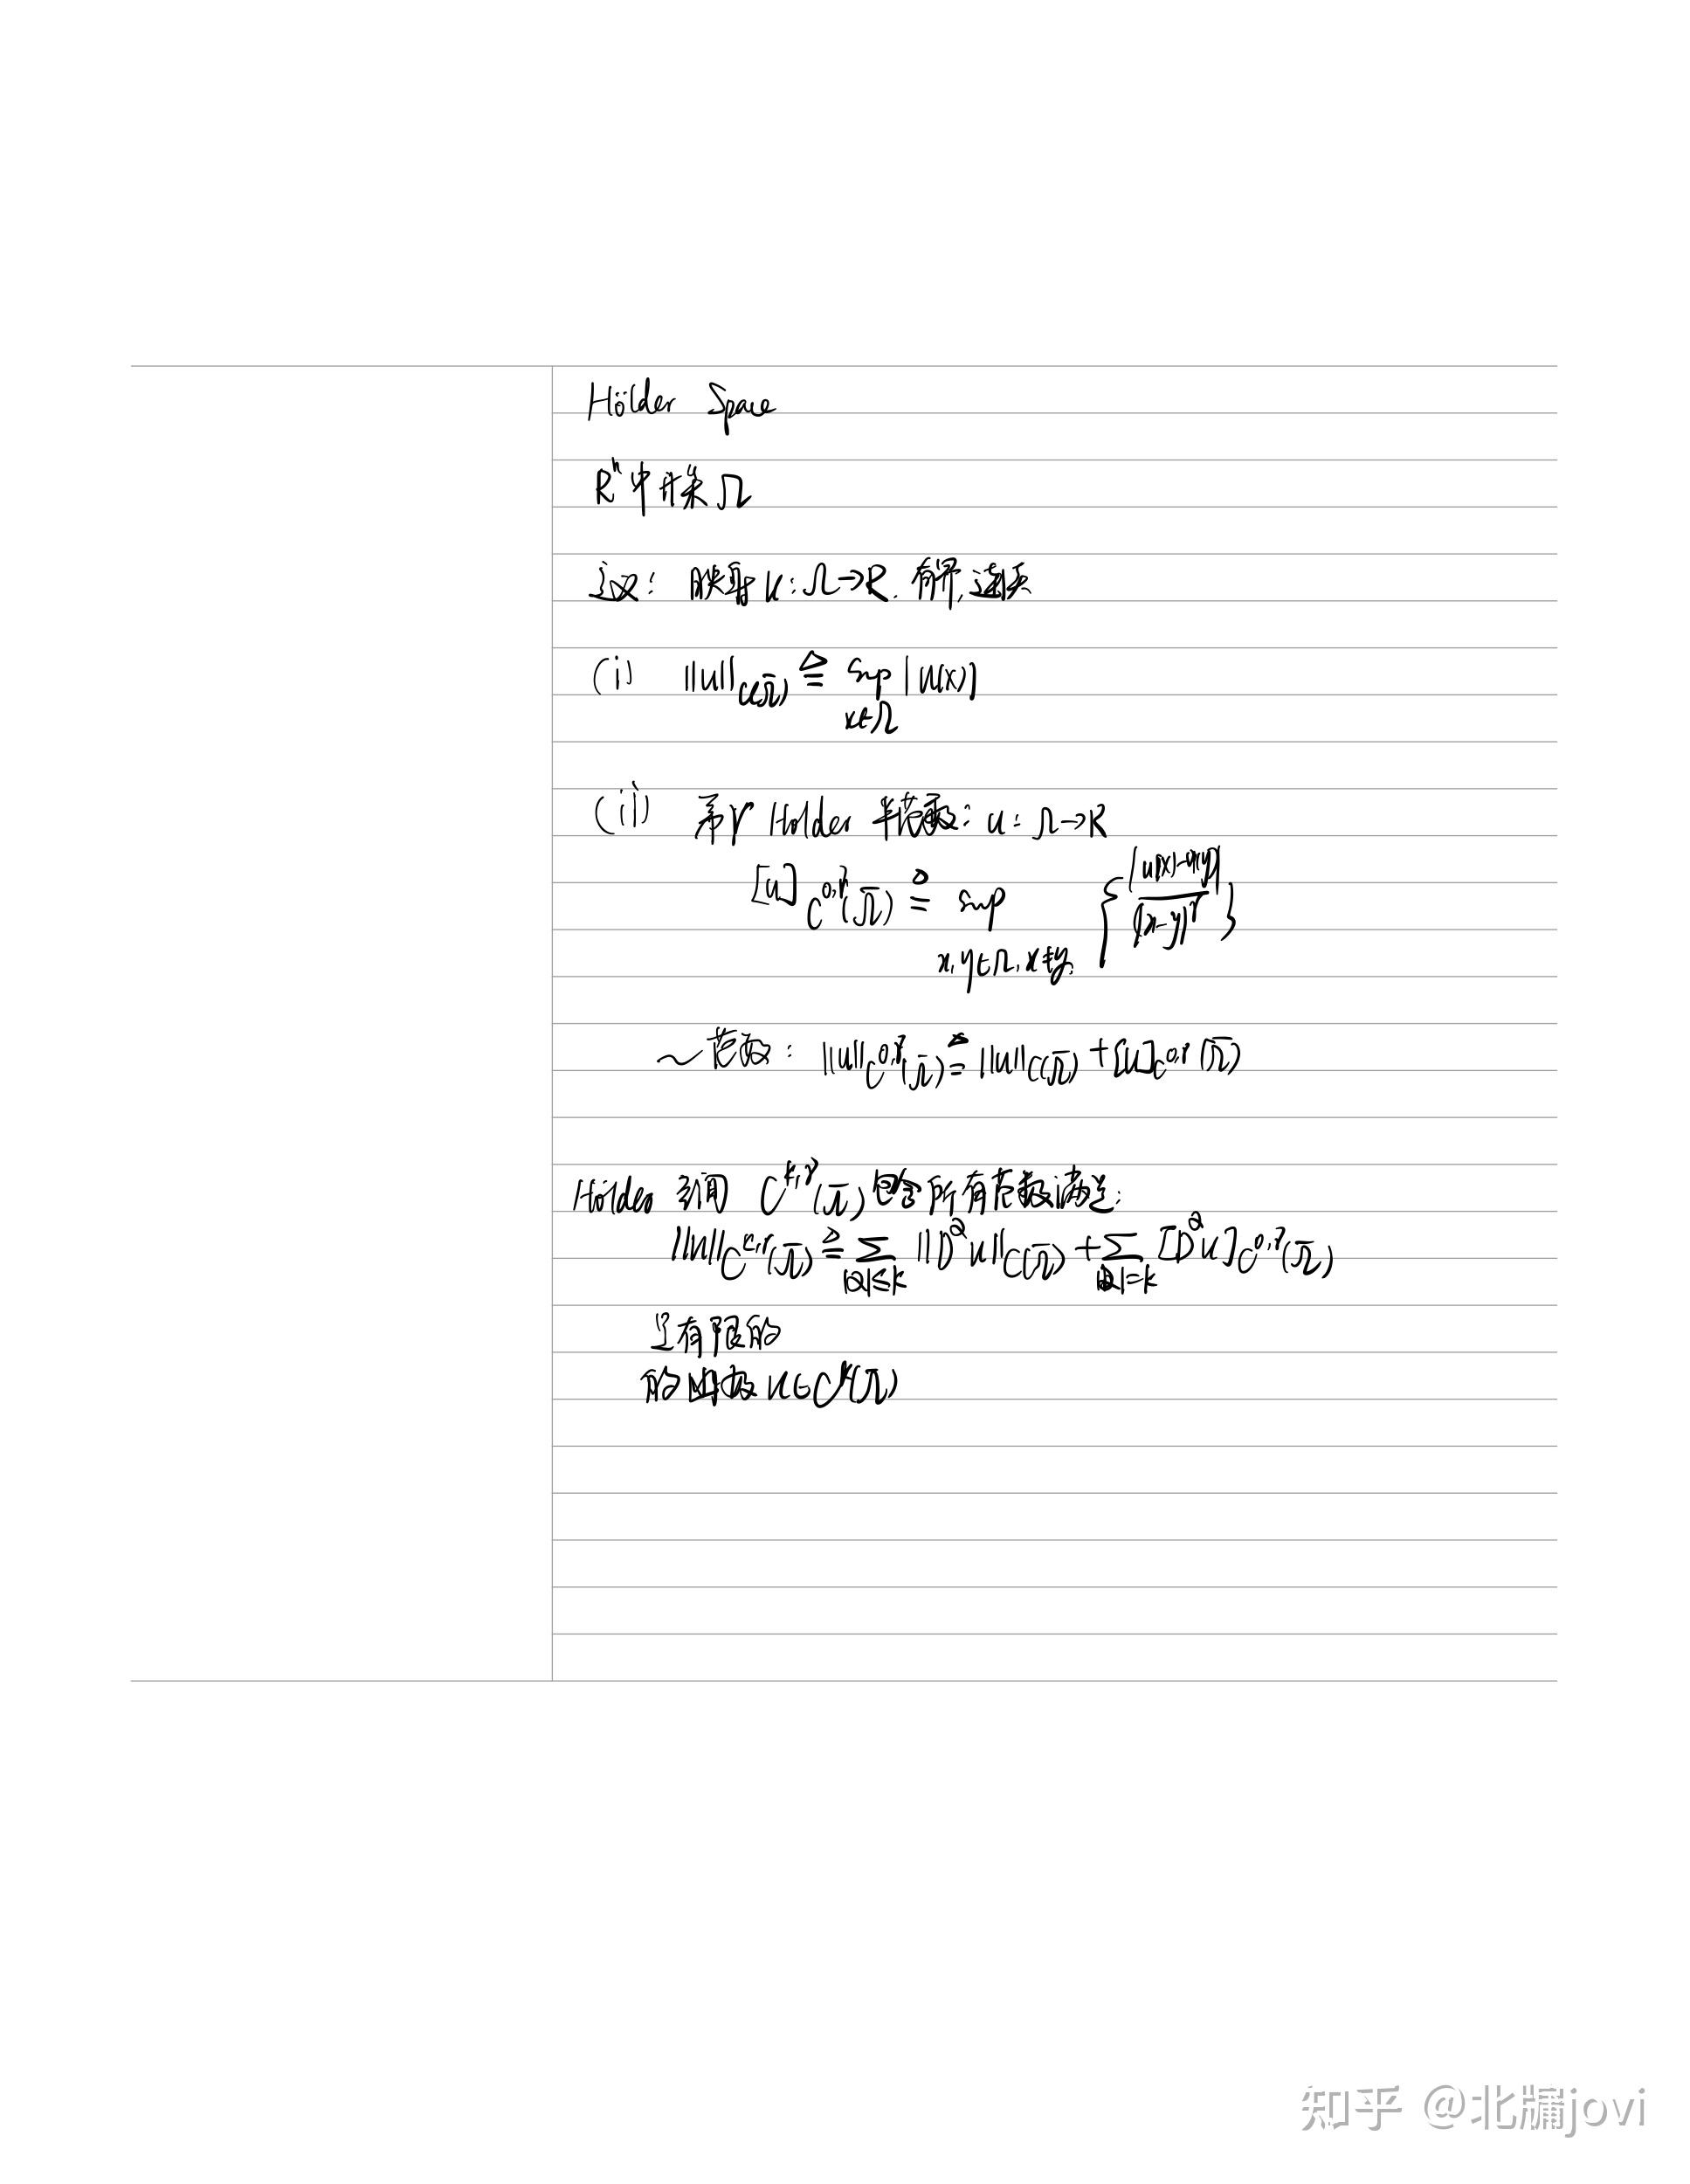 Hölder Space
Rⁿ中开集 Ω
定义: 映射 u: Ω→R. 有界, 连续
(i) ||u||_{C(Ω̄)} ≜ sup_{x∈Ω} |u(x)|
(ii) 第γ Holder 半范数: u: Ω→R
[u]_{C^{0,γ}(Ω̄)} ≜ sup_{x,y∈Ω, x≠y} { |u(x)-u(y)| / |x-y|^γ }
~范数: ||u||_{C^{0,γ}(Ω̄)} ≜ ||u||_{C(Ω̄)} + [u]_{C^{0,γ}(Ω̄)}
Hölder 空间 C^{k,γ}(Ω̄) 包含所有范数满足:
||u||_{C^{k,γ}(Ω̄)} ≜ Σ_{|α|≤k} ||D^α u||_{C(Ω̄)} + Σ_{|α|=k} [D^α u]_{C^{0,γ}(Ω̄)}
是有限的
的函数 u∈C^k(Ω̄)
知乎 @北牗jovi